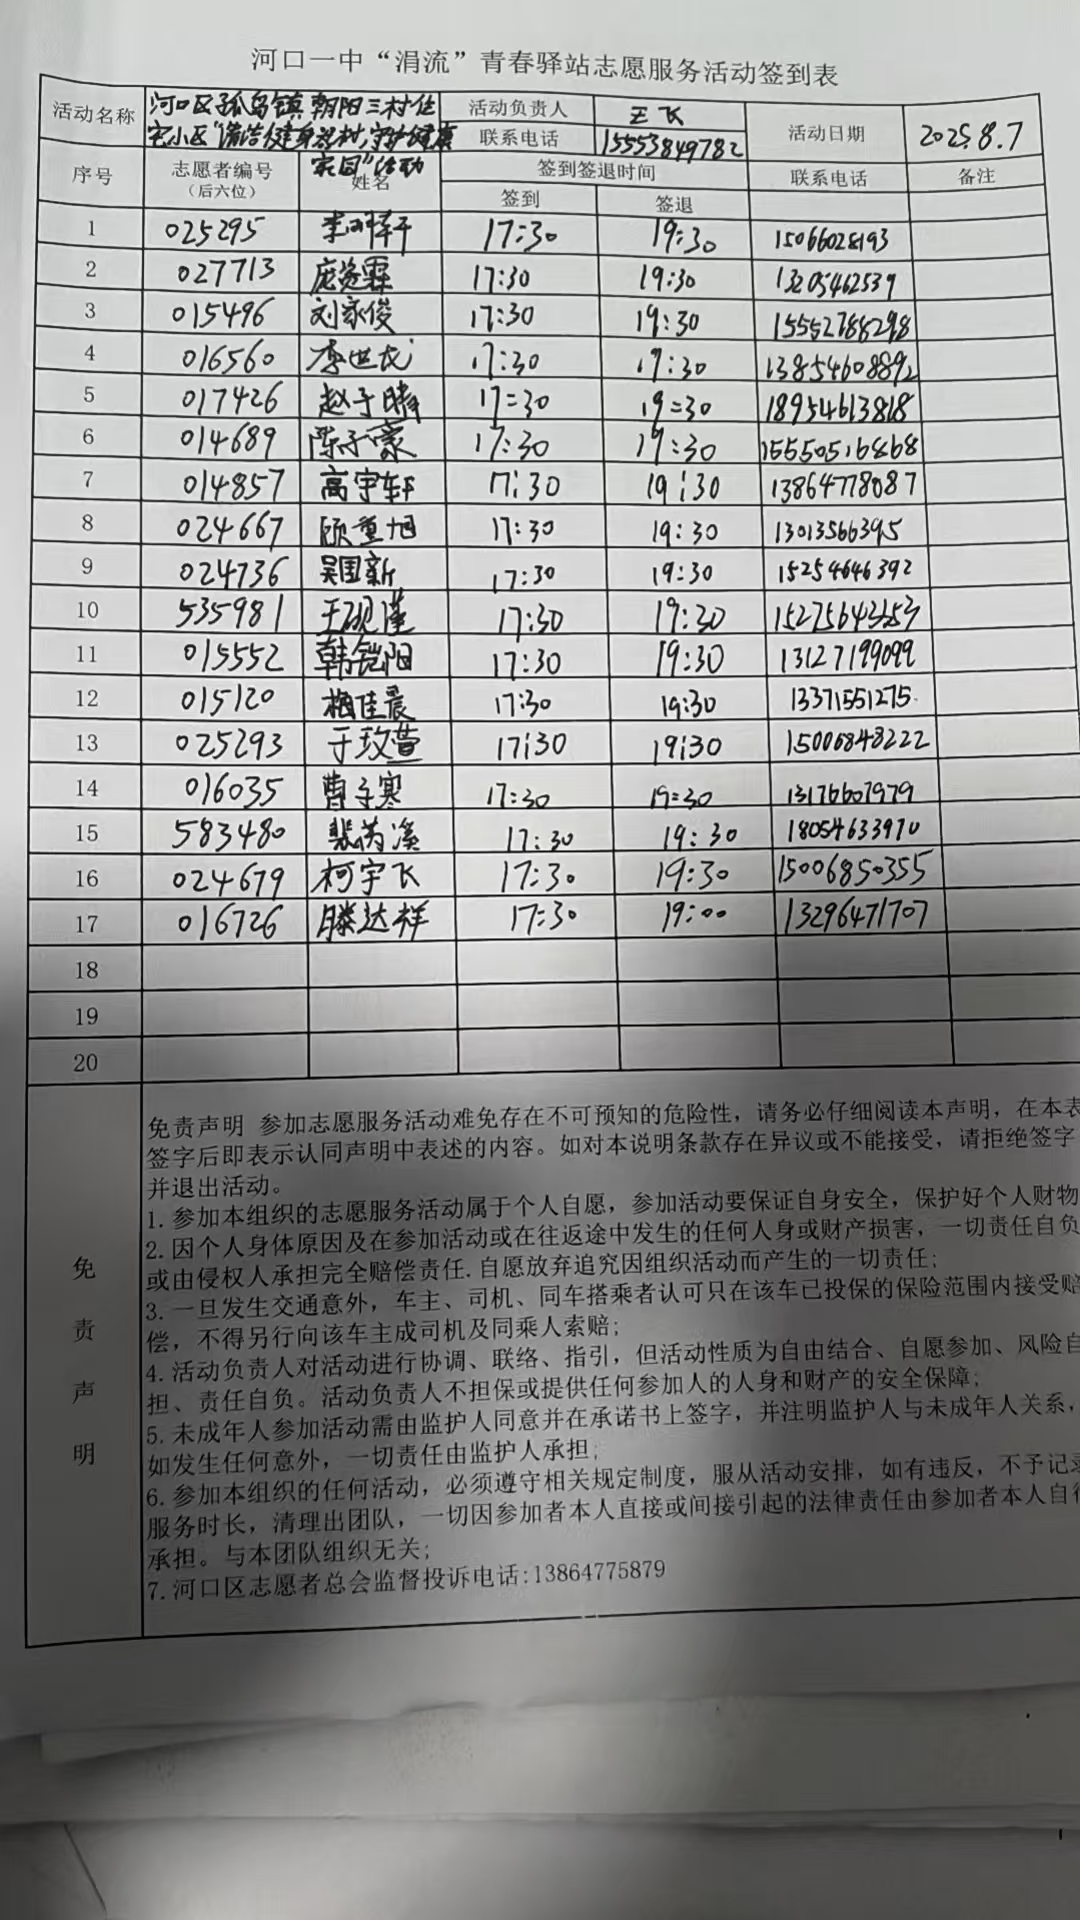 河口一中“涓流”青春驿站志愿服务活动签到表
活动名称 河口区孤岛镇朝阳三村住宅小区“清洁健身器材,守护健康家园”活动
活动负责人 王飞
联系电话 15553849782
活动日期 2025.8.7
序号 志愿者编号（后六位） 姓名 签到签退时间 联系电话 备注
签到 签退
1 025295 17:30 19:30 15066028193
2 027713 17:30 19:30 13205462539
3 015496 刘家俊 17:30 19:30 15552788298
4 016560 李世龙 17:30 19:30 13854608892
5 017426 赵于晴 17=30 19=30 18954613818
6 014689 陈子豪 17:30 19:30 15550516868
7 014857 高宇轩 17:30 19:30 13864778087
8 024667 顾重旭 17:30 19:30 13013566395
9 024736 吴国新 17:30 19:30 15254646392
10 535981 王砚谨 17:30 19:30 15275643253
11 015552 韩铠阳 17:30 19:30 13127199099
12 015120 梅佳晨 17:30 19:30 13371551275
13 025293 于玫萱 17:30 19:30 15006848222
14 016035 曹子寒 17:30 19=30 13176607979
15 583480 17:30 19:30 18054633970
16 024679 柯宇飞 17:30 19:30 15006850355
17 016726 滕达祥 17:30 19:00 13296471707
18
19
20
免责声明
免责声明 参加志愿服务活动难免存在不可预知的危险性，请务必仔细阅读本声明，在本表
签字后即表示认同声明中表述的内容。如对本说明条款存在异议或不能接受，请拒绝签字
并退出活动。
1. 参加本组织的志愿服务活动属于个人自愿，参加活动要保证自身安全，保护好个人财物
2. 因个人身体原因及在参加活动或在往返途中发生的任何人身或财产损害，一切责任自负
或由侵权人承担完全赔偿责任.自愿放弃追究因组织活动而产生的一切责任;
3. 一旦发生交通意外，车主、司机、同车搭乘者认可只在该车已投保的保险范围内接受赔
偿，不得另行向该车主成司机及同乘人索赔;
4. 活动负责人对活动进行协调、联络、指引，但活动性质为自由结合、自愿参加、风险自
担、责任自负。活动负责人不担保或提供任何参加人的人身和财产的安全保障;
5. 未成年人参加活动需由监护人同意并在承诺书上签字，并注明监护人与未成年人关系，
如发生任何意外，一切责任由监护人承担;
6. 参加本组织的任何活动，必须遵守相关规定制度，服从活动安排，如有违反，不予记录
服务时长，清理出团队，一切因参加者本人直接或间接引起的法律责任由参加者本人自行
承担。与本团队组织无关;
7. 河口区志愿者总会监督投诉电话:13864775879